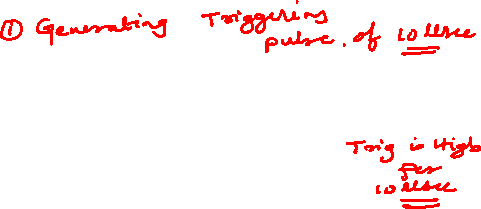 ① Generating Triggering
pulse of 10 μsec
Trig is High
for
10 μsec